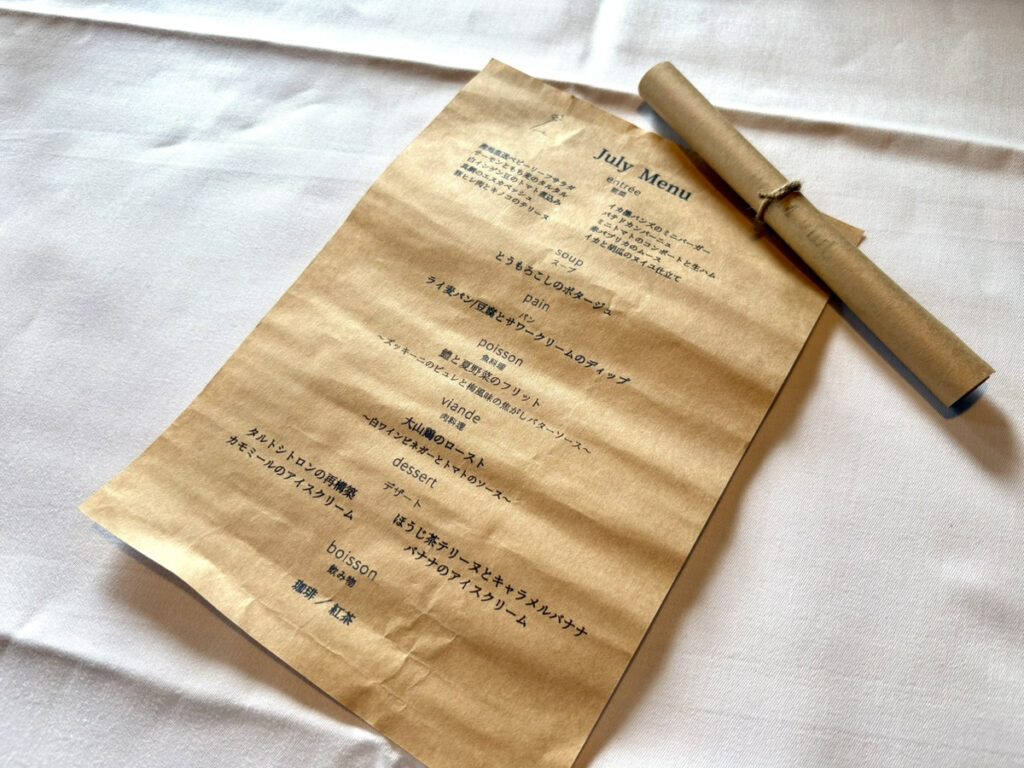 July Menu
entrée
前菜
産地直送ベビーリーフサラダ
サーモンともち麦のタルタル
白インゲン豆のトマト煮込み
真鯛のエスカベッシュ
豚ヒレ肉とキノコのテリーヌ
イカ墨バンズのミニバーガー
パテドカンパーニュ
ミニトマトのコンポートと生ハム
赤パプリカのムース
イカと胡瓜のヌイユ仕立て
soup
スープ
とうもろこしのポタージュ
pain
パン
ライ麦パン/豆腐とサワークリームのディップ
poisson
魚料理
鱧と夏野菜のフリット
～ズッキーニのピュレと梅風味の焦がしバターソース～
viande
肉料理
大山鶏のロースト
～白ワインビネガーとトマトのソース～
dessert
デザート
タルトシトロンの再構築
カモミールのアイスクリーム
ほうじ茶テリーヌとキャラメルバナナ
バナナのアイスクリーム
boisson
飲み物
珈琲 / 紅茶